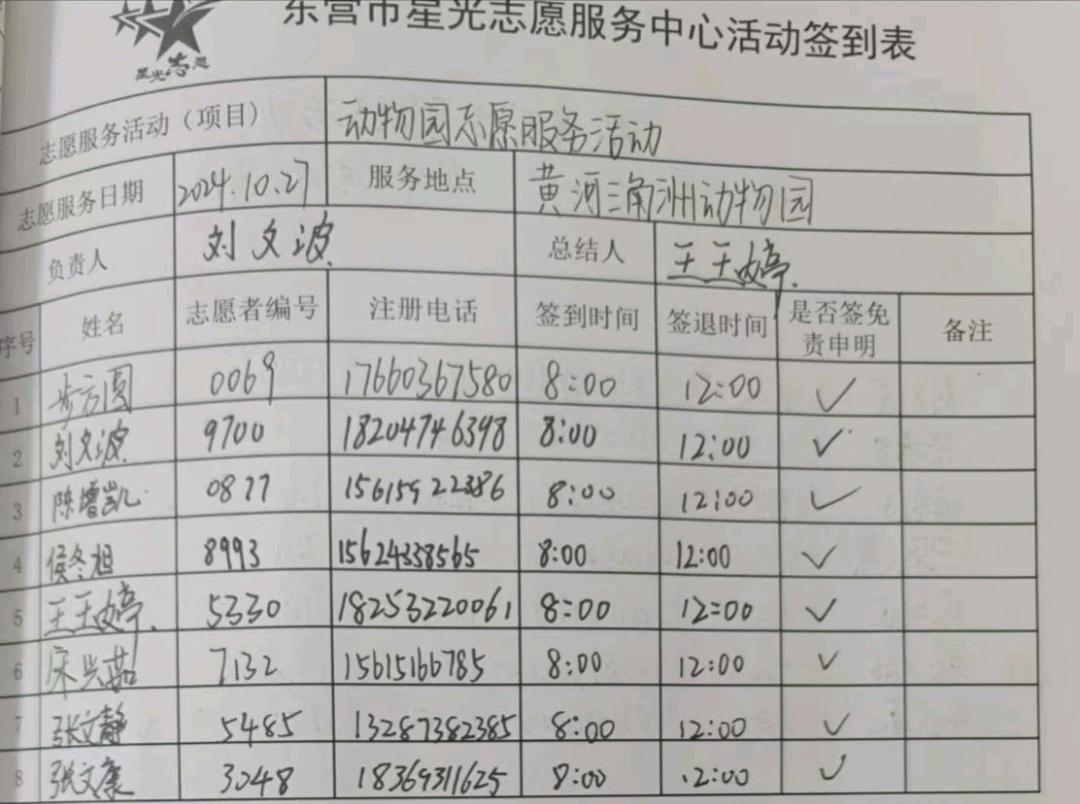 星光志愿
东营市星光志愿服务中心活动签到表
志愿服务活动（项目） 动物园志愿服务活动
志愿服务日期 2024.10.27 服务地点 黄河三角洲动物园
负责人 刘文波 总结人 王玉婷
序号 姓名 志愿者编号 注册电话 签到时间 签退时间 是否签免责申明 备注
1 步方圆 0069 17660367580 8:00 12:00 ✓
2 刘文波 9700 18204746398 8:00 12:00 ✓
3 陈增凯 0877 15615922386 8:00 12:00 ✓
4 侯冬旭 8993 15624338565 8:00 12:00 ✓
5 王玉婷 5330 18253220061 8:00 12:00 ✓
6 宋兴茹 7132 15615166785 8:00 12:00 ✓
7 张文静 5485 13287382385 8:00 12:00 ✓
8 张文康 3048 18369311625 8:00 12:00 ✓